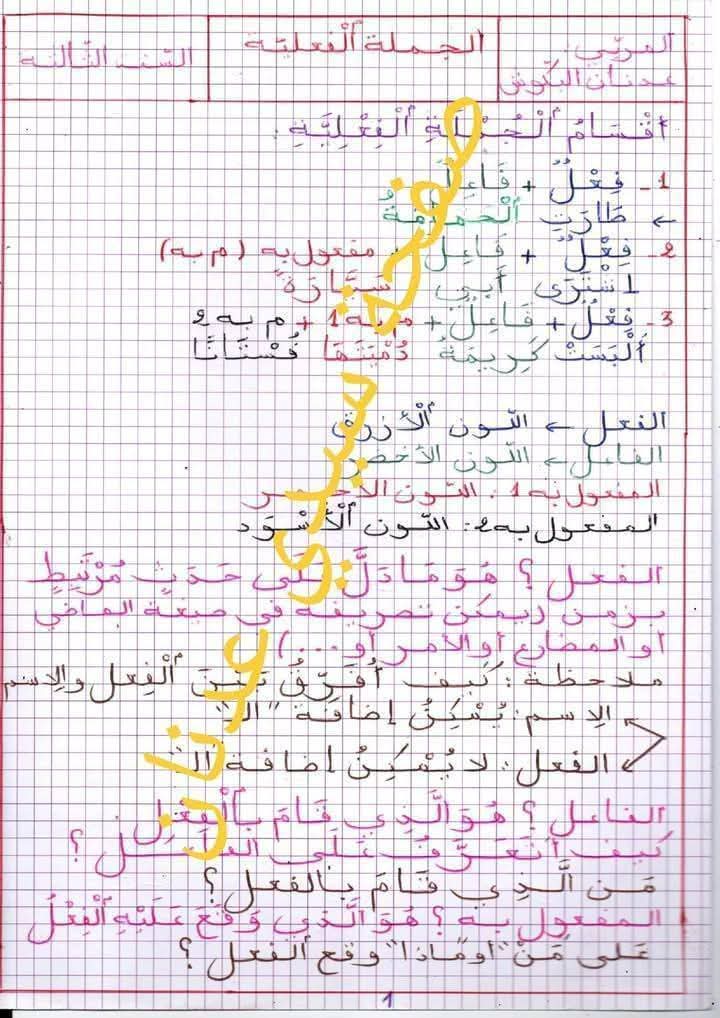 المربّي: الجملة ٱلْفعليّة السّنة الثّالثة
عدنان البكّوش
أَقْسَامُ ٱلْجُمْلَةِ ٱلْفِعْلِيَّةِ:
1- فِعْلٌ + فَاعِلٌ
← طَارَتِ ٱلْحَمَامَةُ
2- فِعْلٌ + فَاعِلٌ + مفعول به (م به)
اشْتَرَى أَبِي سَيَّارَةً
3- فِعْلٌ + فَاعِلٌ + م به 1 + م به 2
أَلْبَسَتْ كَرِيمَةُ دُمْيَتَهَا فُسْتَانًا
الفعل ← اللّون ٱلْأزرق
الفاعل ← اللّون الأخضر
المفعول به 1: اللّون الأحمر
المفعول به 2: اللّون ٱلْأَسْوَد
الفعل؟ هُوَ مَا دَلَّ عَلَى حَدَثٍ مُرْتَبِطٍ
بزمن (يمكن تصريفه في صيغة الماضي
أو المضارع أو الأمر أو...)
ملاحظة: كَيف أُفَرِّقُ بَيْنَ ٱلْفِعل والاسم
الاسم: يُمْكِنُ إضَافَة "الـ"
الفعل: لا يُمْكِنُ إضافة "الـ"
الفاعل؟ هُوَ الَّذِي قَامَ بِٱلْفِعْلِ
كَيف أتعَرَّفُ عَلَى الفاعل؟
مَن الَّذِي قَامَ بالفعل؟
المفعول به؟ هُوَ الَّذي وَقَعَ عَلَيْهِ ٱلْفِعْلُ
عَلى مَنْ "أو مَاذا" وقع ٱلفعل؟
1
صفحة سيدي عدنان